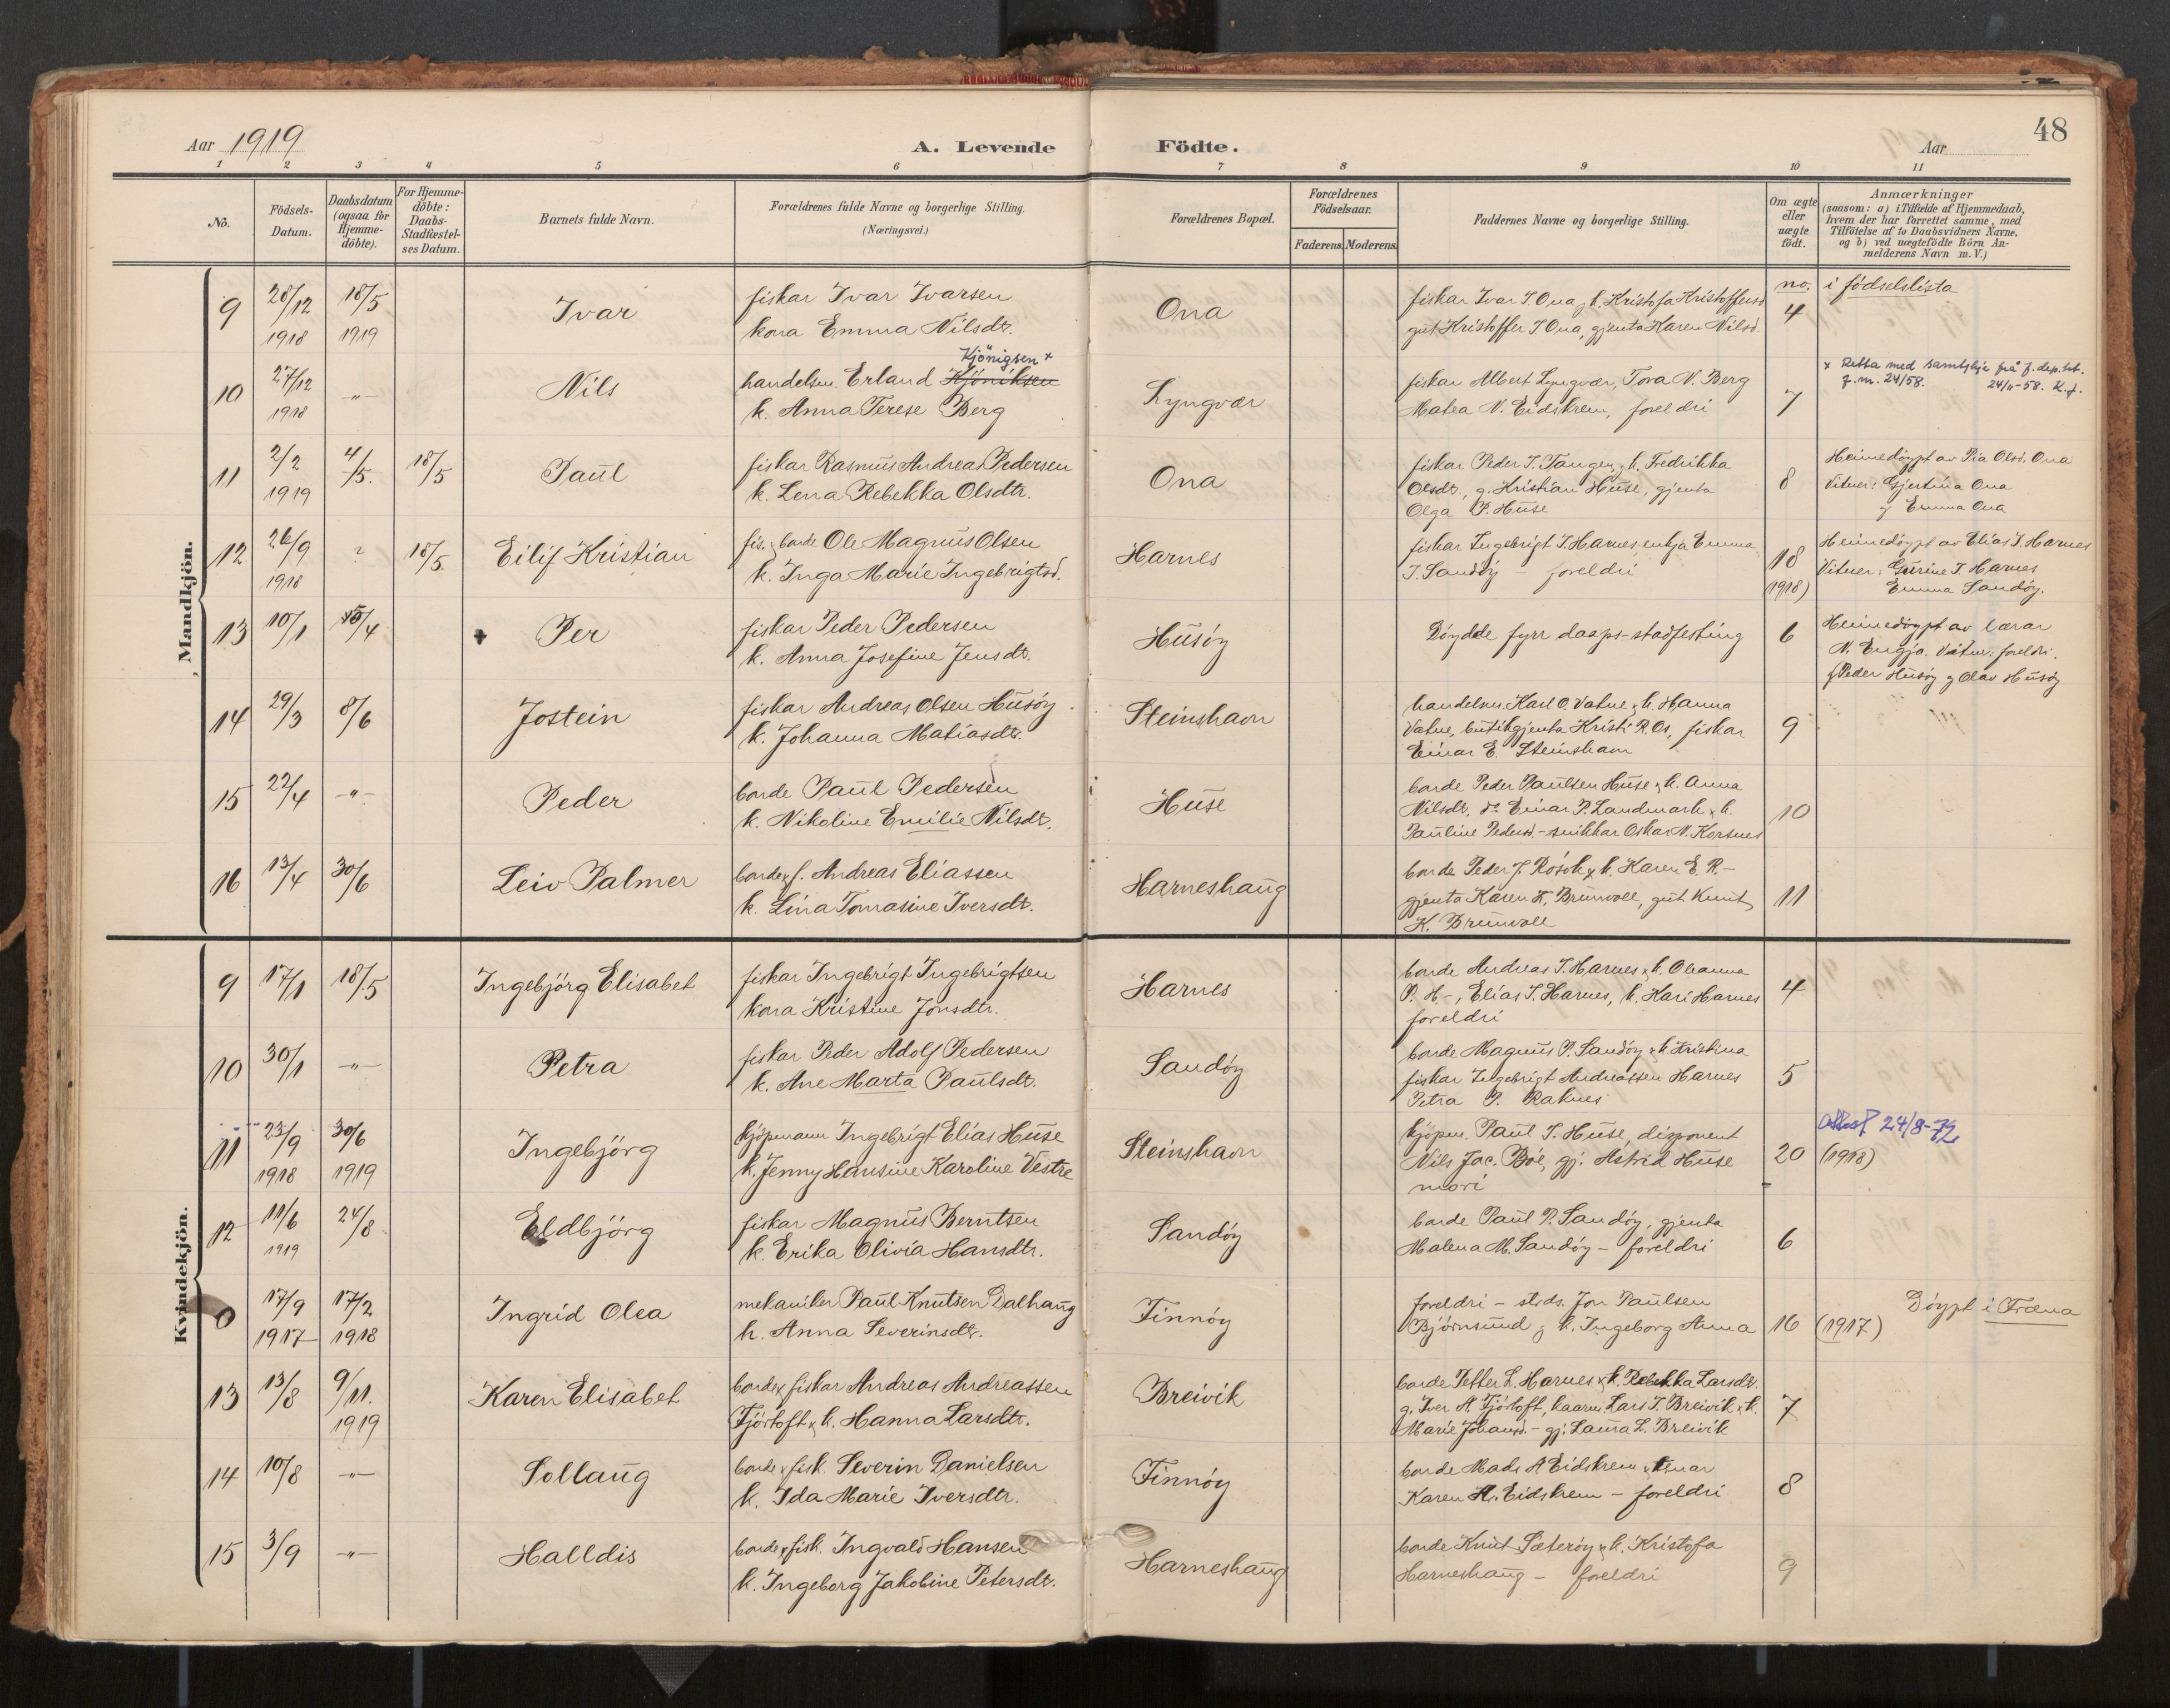 48
Aar 1919
A. Levende Födte.
Aar
1 2 3 4 5 6 7 8 9 10 11
No.
Födsels-
Datum.
Daabsdatum
(ogsaa for
Hjemme-
döbte).
For Hjemme-
döbte:
Daabs-
Stadfæstel-
ses Datum.
Barnets fulde Navn.
Forældrenes fulde Navne og borgerlige Stilling.
(Næringsvei.)
Forældrenes Bopæl.
Forældrenes
Födselsaar.
Faderens. Moderens.
Faddernes Navne og borgerlige Stilling.
Om ægte
eller
uægte
födt.
Anmærkninger
(saasom: a) i Tilfælde af Hjemmedaab,
hvem der har forrettet samme, med
Tilföielse af to Daabsvidners Navne,
og b) ved uægtefödte Börn An-
melderens Navn m. V.)
no. i födselslista
Mandkjön.
9 28/12 1918 18/5 1919 Ivar
fiskar Ivar Ivarsen
kona Emma Nilsdtr.
Ona
fiskar Ivar I. Ona, k. Kristofa Kristoffersd
gut Kristoffer I. Ona, gjenta Karen Nilsd.
4
10 27/12 1918 -"- Nils
Kjönigsen x
handelsm. Erland Kjöniksen
k. Anna Terese Berg
Lyngvær
fiskar Albert Lyngvær, Tora N. Berg
Matea N. Eidskrem, foreldri
7
x Retta med samtykje frå J. dep. tet.
J. nr. 24/58. 24/11-58. K.J.
11 2/2 1919 4/5. 18/5 Paul
fiskar Rasmus Andreas Pedersen
k. Lena Rebekka Olsdtr.
Ona
fiskar Peder I. Tangen, k. Fredrikka
Olsdt., g. Kristian Huse, gjenta
Olga P. Huse
8
Heimedöypt av Pia Olsd. Ona
Vitner: Gjertina Ona
og Emma Ona
12 26/9 1918 ? 18/5. Eilif Kristian
fis. & bonde Ole Magnus Olsen
k. Inga Marie Ingebrigtsd.
Harnes
fiskar Ingebrigt I. Harnes, enkja Emma
I. Sandöy - foreldri
18
1918)
Heimedöypt av Elias I. Harnes
Vitner: Gurine I. Harnes
Emma Sandöy.
13 10/1 15/4 Per
fiskar Peder Pedersen
k. Anna Josefine Jensdt.
Husöy
Döydde fyrr daaps-stadfesting
6
Heimedöypt av lærar
N. Engja. Vitner: foreldri.
Peder Husöy og Olav Husöy
14 29/3 8/6 Jostein
fiskar Andreas Olsen Husöy
k. Johanna Matiasdtr.
Steinshavn
handelsm. Karl O. Vatne & k. Hanna
Vatne, butikgjenta Kristi R. Os, fiskar
Einar E. Steinshavn
9
15 22/4 -"- Peder
bonde Paul Pedersen
k. Nikoline Emilie Nilsdt.
Huse
bonde Peder Paulsen Huse & k. Anna
Nilsdt., do Einar P. Landmark & k.
Pauline Pedersd. - snikkar Oskar N. Korsnes
10
16 13/4 30/6 Leiv Palmer
bonde & f. Andreas Eliassen
k. Lina Tomasine Iversdt.
Harneshaug
bonde Peder J. Rösok & k. Karen E. R.-
gjenta Karen K. Brunvoll, gut Knut
K. Brunvoll
11
Kvindekjön.
9 17/1 18/5 Ingebjörg Elisabet
fiskar Ingebrigt Ingebrigtsen
kona Kristine Jonsdtr.
Harnes
bonde Andreas I. Harnes & k. Oleanna
P. H.-, Elias I. Harnes, k. Kari Harnes
foreldri
4
10 30/1 -"- Petra
fiskar Peder Adolf Pedersen
k. Ane Marta Paulsdt.
Sandöy
bonde Magnus P. Sandöy & k. Kristina
fiskar Ingebrigt Andreassen Harnes
Petra P. Raknes
5
11 23/9 1918 30/6 1919 Ingebjörg
kjöpmann Ingebrigt Elias Huse
k. Jenny Hansine Karoline Vestre
Steinshavn
kjöpm. Paul I. Huse, disponent
Nils Jac. Böe, gj. Astrid Huse
mori
20 (1918)
Attest 24/8-72
12 11/6 1919 24/8 Eldbjörg
fiskar Magnus Berntsen
k. Erika Olivia Hansdtr.
Sandöy
bonde Paul P. Sandöy, gjenta
Malena M. Sandöy - foreldri
6
0 17/9 1917 17/2 1918 Ingrid Olea
mekaniker Paul Knutsen Dalhaug
k. Anna Severinsdtr.
Finnöy
foreldri - stsds. Jon Paulsen
Björnsund & k. Ingeborg Anna
16 (1917)
Döypt i Fræna
13 13/8 9/11. 1919 Karen Elisabet
bonde & fiskar Andreas Andreassen
Fjörtoft & k. Hanna Larsdtr.
Breivik
bonde Petter L. Harnes & k. Rebekka Larsdt.
g. Iver A. Fjörtoft, kaarm. Lars I. Breivik & k.
Marie Johansd. - gj. Laura L. Breivik
7
14 10/8 -"- Sollaug
bonde & fisk. Severin Danielsen
k. Ida Marie Iversdtr.
Finnöy
bonde Mads A Eidskrem &
Karen M. Eidskrem - foreldri
8
15 3/9 -"- Halldis
bonde & fisk. Ingvald Hansen
k. Ingeborg Jakobine Petersdt.
Harneshaug
bonde Knut Sæteröy & k. Kristofa
Harneshaug - foreldri
9